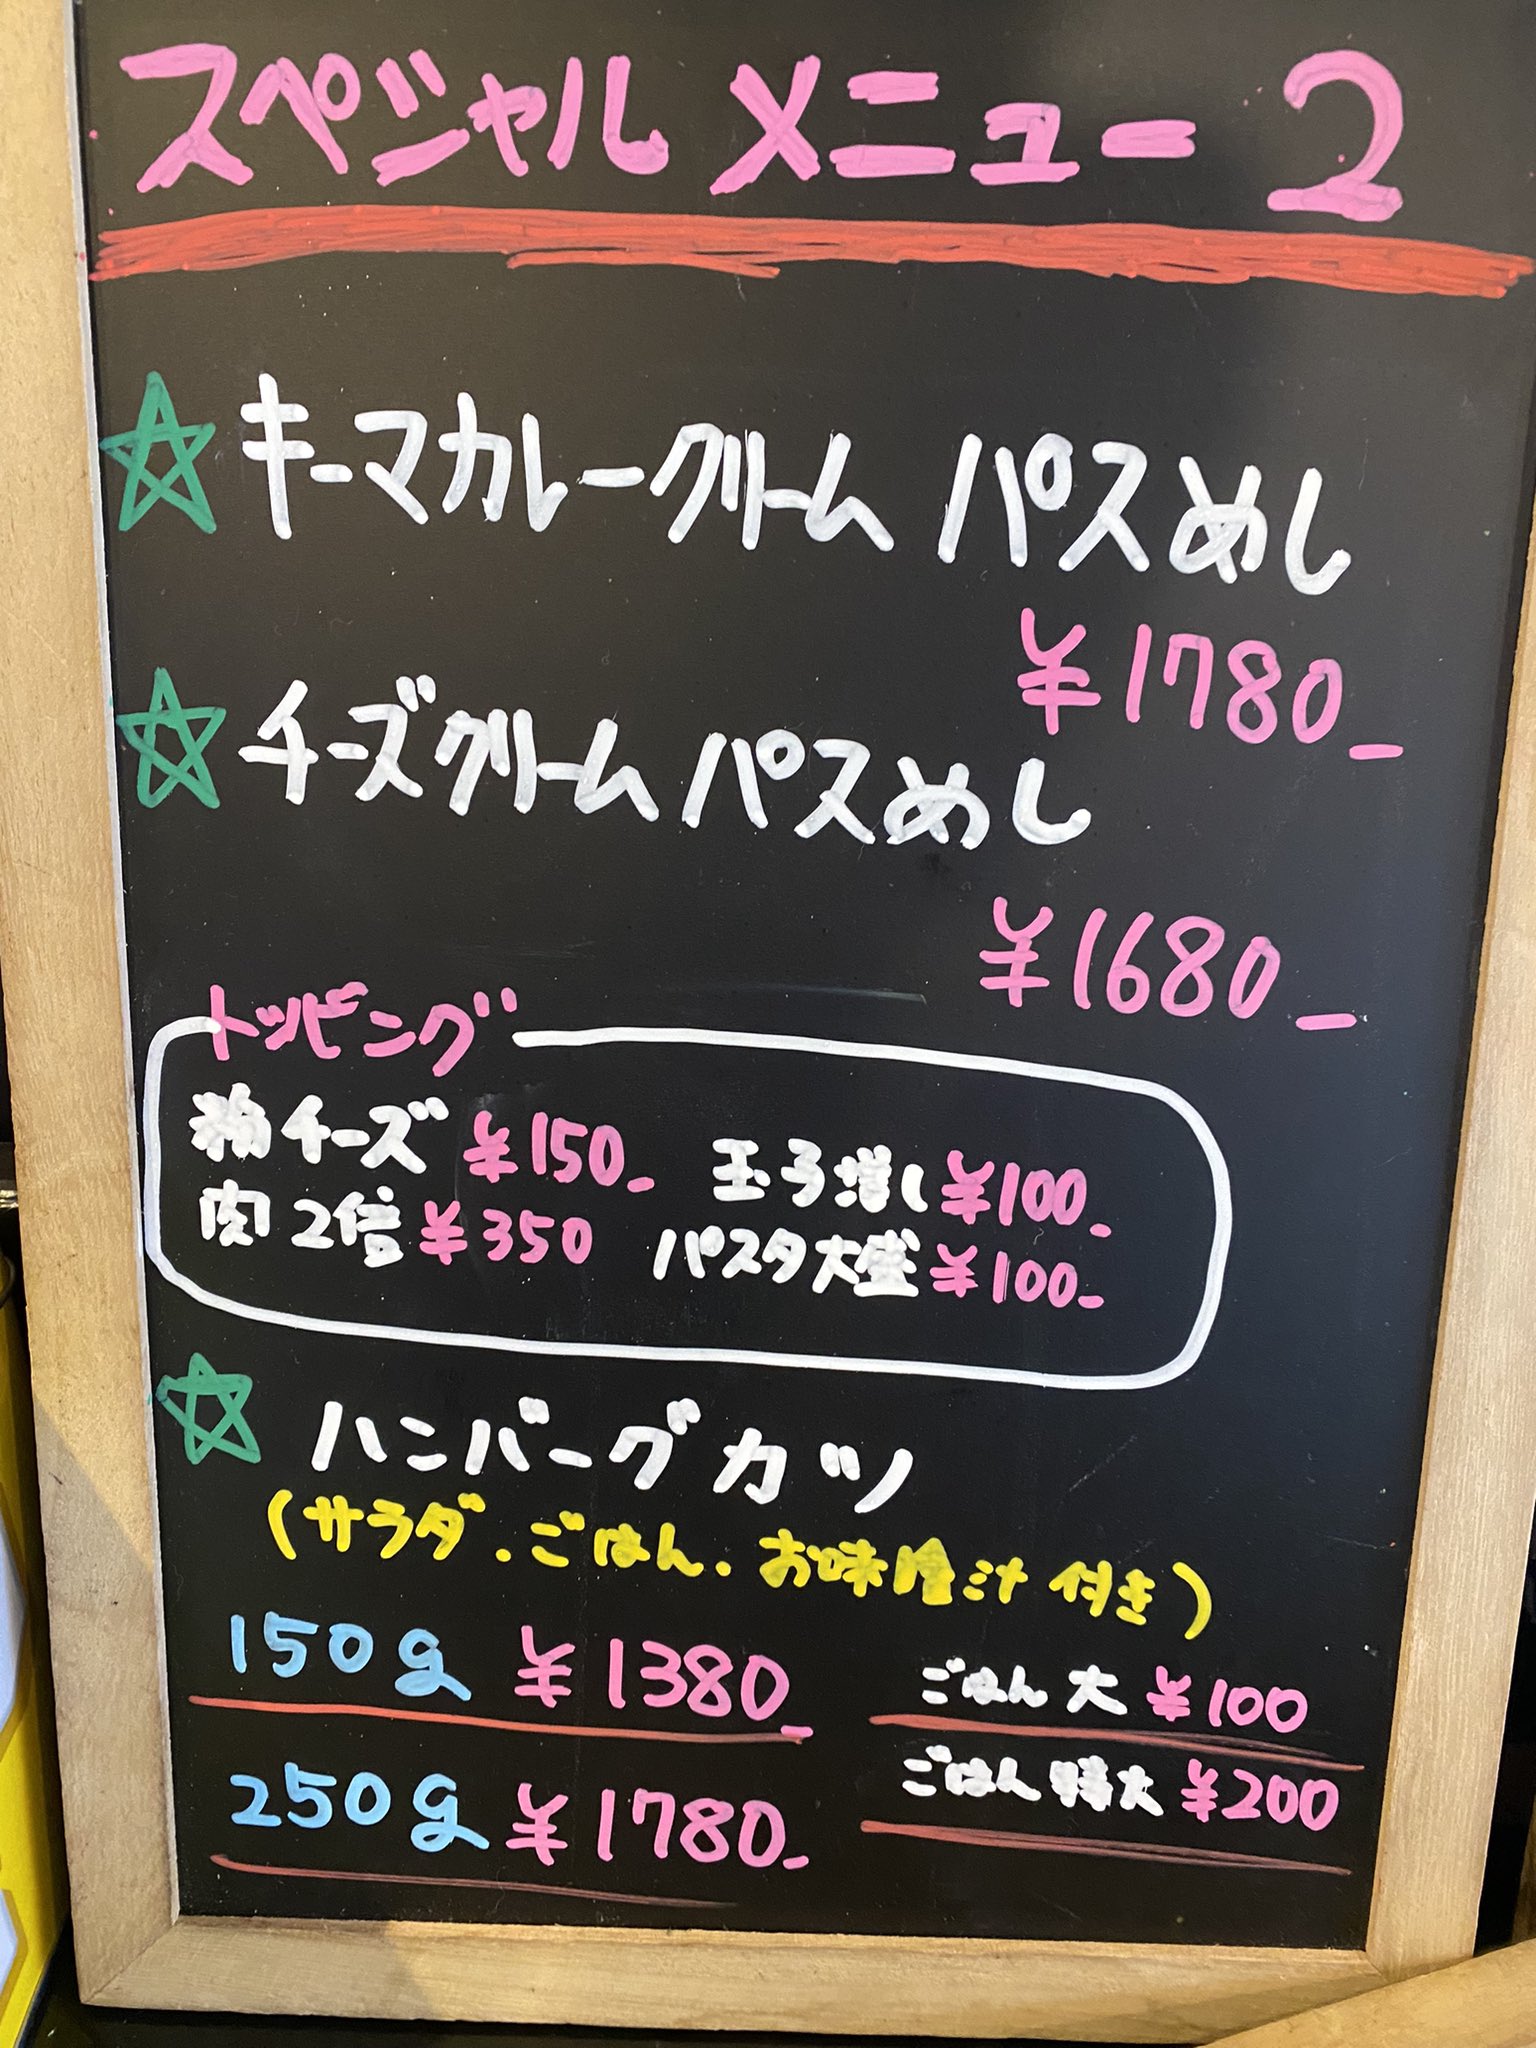 スペシャル メニュー 2
☆キーマカレークリーム パスめし
¥1780_
☆チーズクリーム パスめし
¥1680_
トッピング
粉チーズ ¥150_ 玉子増し ¥100_
肉2倍 ¥350 パスタ大盛 ¥100_
☆ ハンバーグ カツ
(サラダ・ごはん・お味噌汁 付き)
150g ¥1380_ ごはん 大 ¥100
250g ¥1780_ ごはん 特大 ¥200